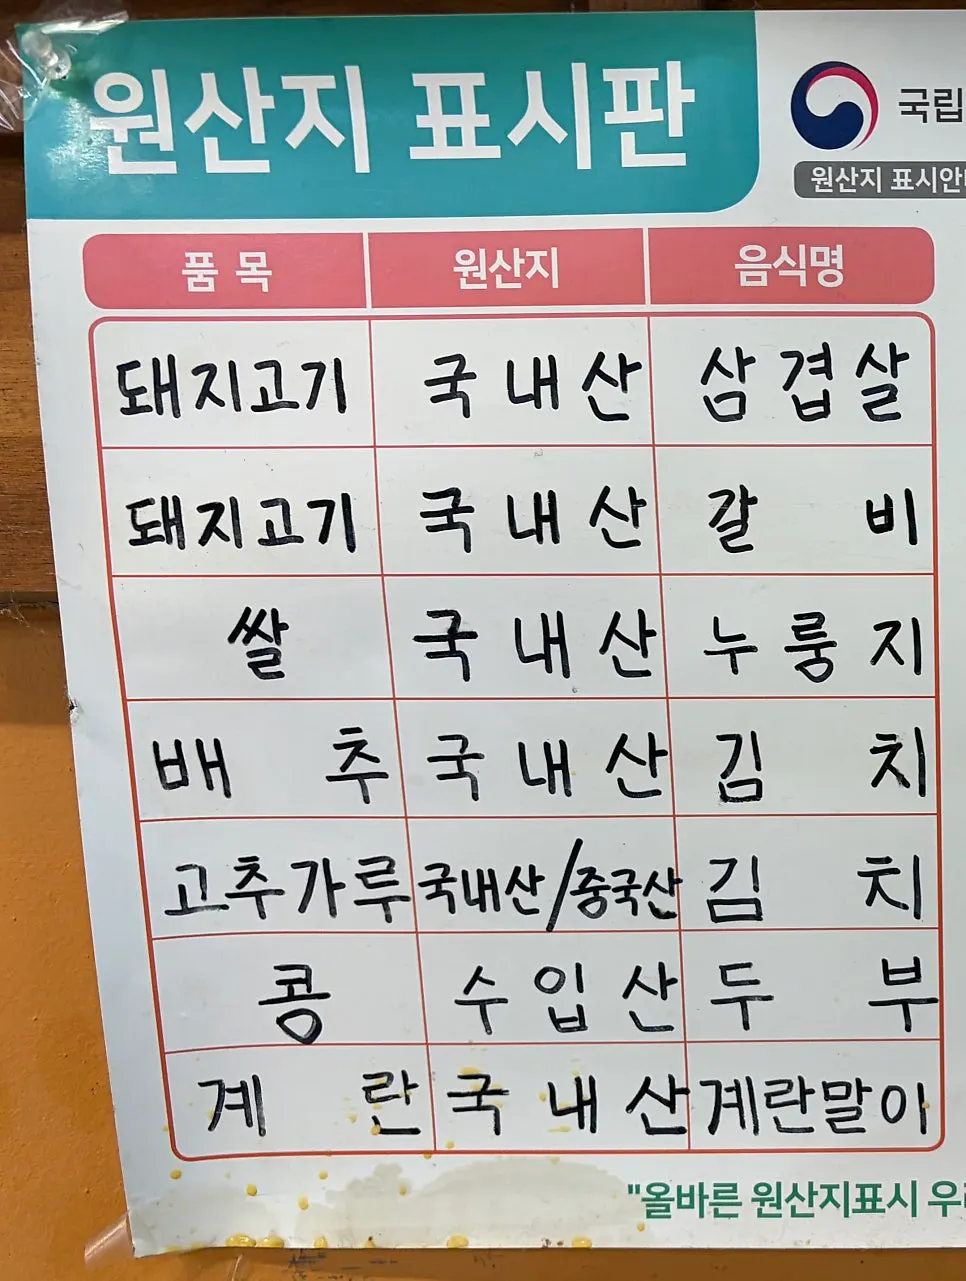 원산지 표시판
국립
원산지 표시안
품 목 원산지 음식명
돼지고기 국내산 삼겹살
돼지고기 국내산 갈비
쌀 국내산 누룽지
배추 국내산 김치
고추가루 국내산/중국산 김치
콩 수입산 두부
계란 국내산 계란말이
"올바른 원산지표시 우리